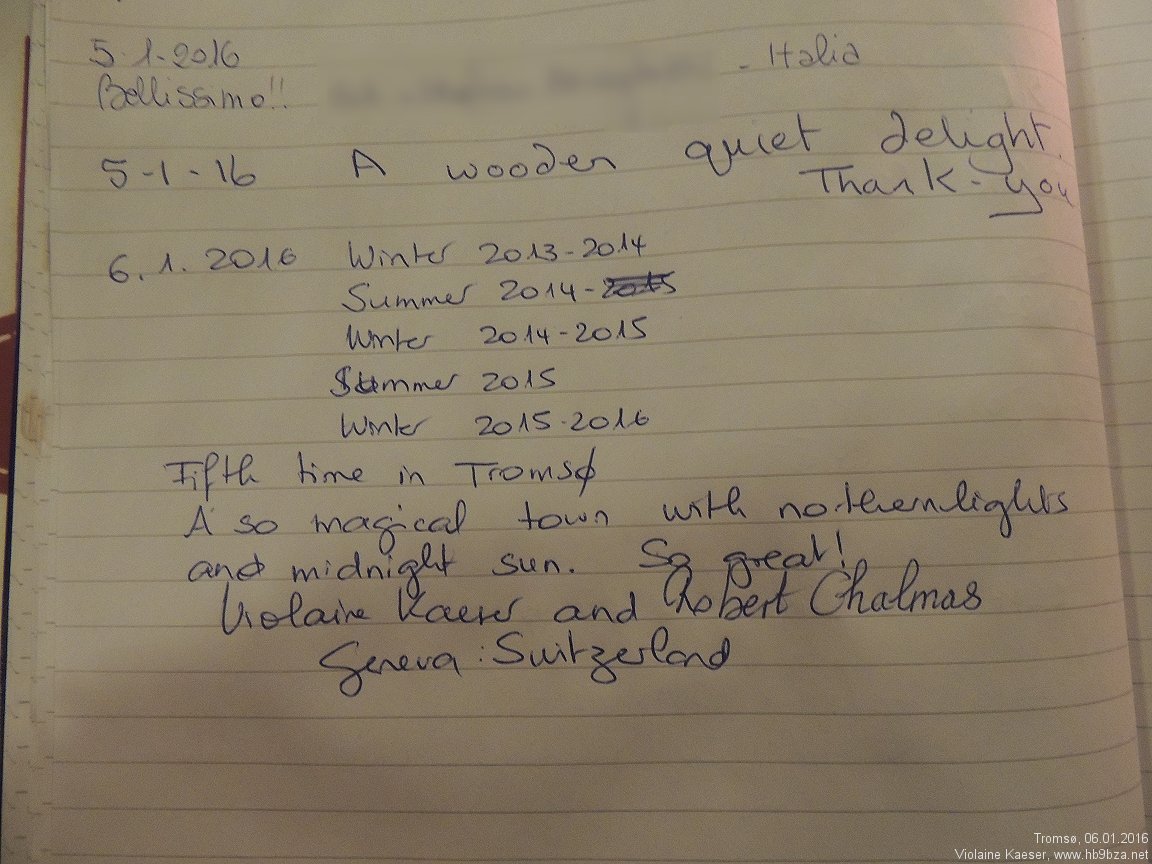 5.1.2016
- Italia
Bellissimo!!
5-1-16 A wooden quiet delight.
Thank-you
6.1.2016 Winter 2013-2014
Summer 2014-
Winter 2014-2015
Summer 2015
Winter 2015-2016
Fifth time in Tromsø
A so magical town with northernlights
and midnight sun. So great!
Violaine Kaeser and Robert Chalmas
Geneva : Switzerland
Tromsø, 06.01.2016
Violaine Kaeser, www.hb9bza.net